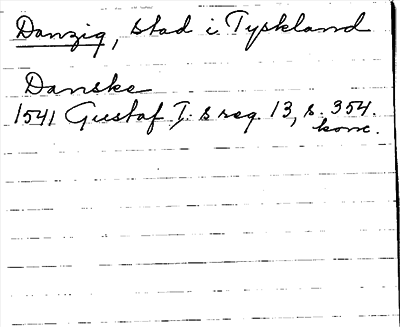 Danzig, stad i Tyskland
Danske
1541 Gustaf I:s reg. 13, s. 354.
konc.